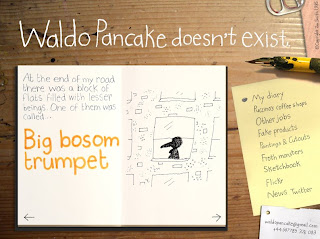 Waldo Pancake doesn't exist.
At the end of my road
there was a block of
flats filled with lesser
beings. One of them was
called...
Big bosom
trumpet
My diary
Recent coffee shops
Other jobs
Fake products
Paintings & Cutouts
Fresh monsters
Sketchbook
Flickr
News Twitter
waldopancake@gmail.com